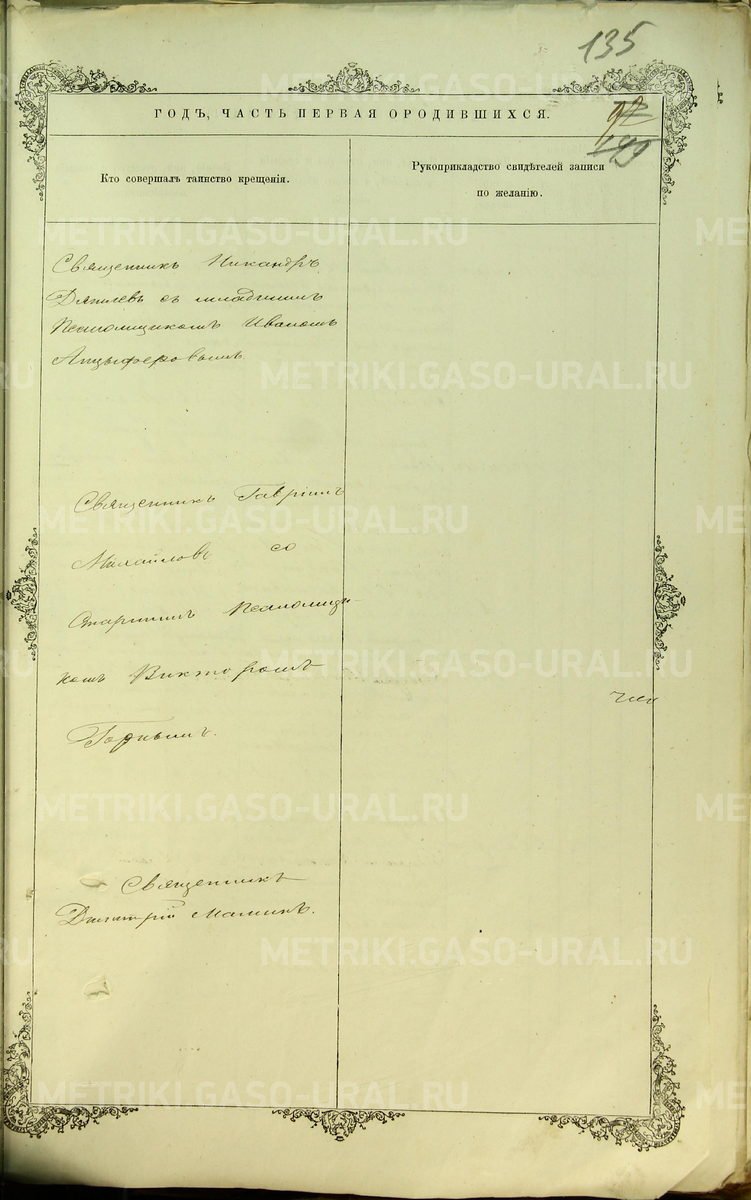 135
ГОДЪ, ЧАСТЬ ПЕРВАЯ ОРОДИВШИХСЯ.
Кто совершалъ таинство крещенія.
Рукоприкладство свидѣтелей записи
по желанію.
Священникъ Никандръ
съ младшимъ
Псаломщикомъ Иваномъ
Анцыферовымъ
Священникъ Гавріилъ
Михайловъ со
Старшимъ Псаломщи-
комъ Викторомъ
Священникъ
Дмитрій Маминъ.
METRIKI.GASO-URAL.RU